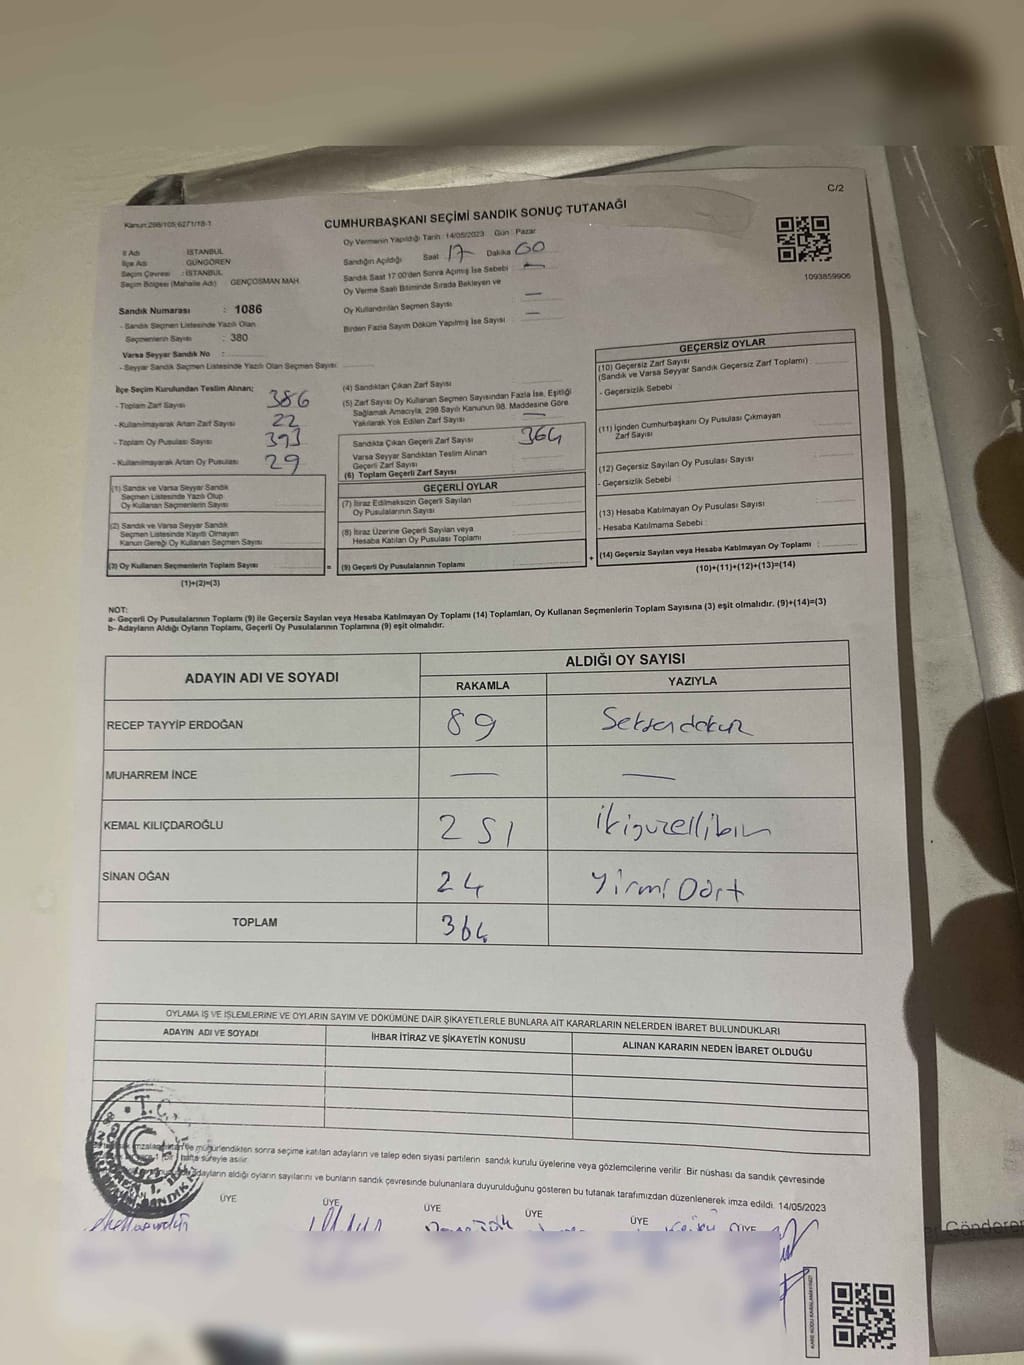 C/2
Kanun:298/105;6271/18-1
CUMHURBAŞKANI SEÇİMİ SANDIK SONUÇ TUTANAĞI
Oy Vermenin Yapıldığı Tarih : 14/05/2023 Gün : Pazar
İl Adı : İSTANBUL
İlçe Adı : GÜNGÖREN
Seçim Çevresi : İSTANBUL
Seçim Bölgesi (Mahalle Adı) : GENÇOSMAN MAH.
Sandığın Açıldığı Saat 17 Dakika 00
Sandık Saat 17:00'den Sonra Açımış İse Sebebi : —
Oy Verme Saati Bitiminde Sırada Bekleyen ve
Oy Kullandırılan Seçmen Sayısı : —
Birden Fazla Sayım Döküm Yapılmış İse Sayısı : —
1093859906
Sandık Numarası : 1086
- Sandık Seçmen Listesinde Yazılı Olan
Seçmenlerin Sayısı : 380
Varsa Seyyar Sandık No :
- Seyyar Sandık Seçmen Listesinde Yazılı Olan Seçmen Sayısı :
İlçe Seçim Kurulundan Teslim Alınan;
- Toplam Zarf Sayısı 386
- Kullanılmayarak Artan Zarf Sayısı 22
- Toplam Oy Pusulası Sayısı 393
- Kullanılmayarak Artan Oy Pusulası 29
(1) Sandık ve Varsa Seyyar Sandık
Seçmen Listesinde Yazılı Olup
Oy Kullanan Seçmenlerin Sayısı
(2) Sandık ve Varsa Seyyar Sandık
Seçmen Listesinde Kayıtlı Olmayan
Kanun Gereği Oy Kullanan Seçmen Sayısı
(3) Oy Kullanan Seçmenlerin Toplam Sayısı
(1)+(2)=(3)
=
(4) Sandıktan Çıkan Zarf Sayısı
(5) Zarf Sayısı Oy Kullanan Seçmen Sayısından Fazla İse, Eşitliği
Sağlamak Amacıyla, 298 Sayılı Kanunun 98. Maddesine Göre
Yakılarak Yok Edilen Zarf Sayısı —
Sandıkta Çıkan Geçerli Zarf Sayısı 364
Varsa Seyyar Sandıktan Teslim Alınan
Geçerli Zarf Sayısı
(6) Toplam Geçerli Zarf Sayısı
GEÇERLİ OYLAR
(7) İtiraz Edilmeksizin Geçerli Sayılan
Oy Pusulalarının Sayısı
(8) İtiraz Üzerine Geçerli Sayılan veya
Hesaba Katılan Oy Pusulası Toplamı
(9) Geçerli Oy Pusulalarının Toplamı
+
GEÇERSİZ OYLAR
(10) Geçersiz Zarf Sayısı
(Sandık ve Varsa Seyyar Sandık Geçersiz Zarf Toplamı)
- Geçersizlik Sebebi
(11) İçinden Cumhurbaşkanı Oy Pusulası Çıkmayan
Zarf Sayısı
(12) Geçersiz Sayılan Oy Pusulası Sayısı
- Geçersizlik Sebebi :
(13) Hesaba Katılmayan Oy Pusulası Sayısı
- Hesaba Katılmama Sebebi :
(14) Geçersiz Sayılan veya Hesaba Katılmayan Oy Toplamı :
(10)+(11)+(12)+(13)=(14)
NOT:
a- Geçerli Oy Pusulalarının Toplamı (9) ile Geçersiz Sayılan veya Hesaba Katılmayan Oy Toplamı (14) Toplamları, Oy Kullanan Seçmenlerin Toplam Sayısına (3) eşit olmalıdır. (9)+(14)=(3)
b- Adayların Aldığı Oyların Toplamı, Geçerli Oy Pusulalarının Toplamına (9) eşit olmalıdır.
ADAYIN ADI VE SOYADI
ALDIĞI OY SAYISI
RAKAMLA YAZIYLA
RECEP TAYYİP ERDOĞAN 89 Seksendokuz
MUHARREM İNCE — —
KEMAL KILIÇDAROĞLU 251 ikiyüzellibir
SİNAN OĞAN 24 Yirmi Dört
TOPLAM 364
OYLAMA İŞ VE İŞLEMLERİNE VE OYLARIN SAYIM VE DÖKÜMÜNE DAİR ŞİKAYETLERLE BUNLARA AİT KARARLARIN NELERDEN İBARET BULUNDUKLARI
ADAYIN ADI VE SOYADI İHBAR İTİRAZ VE ŞİKAYETİN KONUSU ALINAN KARARIN NEDEN İBARET OLDUĞU
T.C.
mühürlendikten sonra seçime katılan adayların ve talep eden siyasi partilerin sandık kurulu üyelerine veya gözlemcilerine verilir. Bir nüshası da sandık çevresinde
hafta süreyle asılır.
adayların aldığı oyların sayılarını ve bunların sandık çevresinde bulunanlara duyurulduğunu gösteren bu tutanak tarafımızdan düzenlenerek imza edildi. 14/05/2023
ÜYE ÜYE ÜYE ÜYE ÜYE ÜYE
KARE KODU KARALAMAYINIZ!
Gönderen